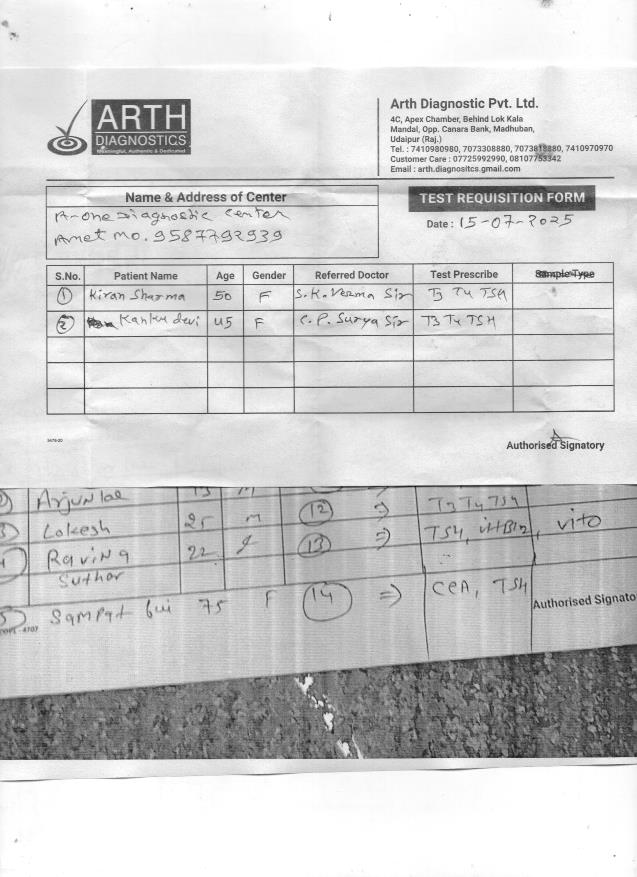 ARTH
DIAGNOSTICS
Meaningful, Authentic & Dedicated
Arth Diagnostic Pvt. Ltd.
4C, Apex Chamber, Behind Lok Kala
Mandal, Opp. Canara Bank, Madhuban,
Udaipur (Raj.)
Tel. : 7410980980, 7073308880, 7073818880, 7410970970
Customer Care : 07725992990, 08107753342
Email : arth.diagnositcs.gmail.com
Name & Address of Center
A-one Diagnostic Center
Amet Mo. 9587792939
TEST REQUISITION FORM
Date : 15-07-2025
S.No. Patient Name Age Gender Referred Doctor Test Prescribe Sample Type
1 Kiran Sharma 50 F S.K. Verma Sir T3 T4 TSH
2 Kanku devi 45 F C.P. Surya Sir T3 T4 TSH
3478-20
Authorised Signatory
Arjun lal M 12 ⇒ T3 T4 TSH
3) Lokesh 25 M 13 ⇒ TSH, vitB12, vito
Ravina 22
Suthar
5 Sampat bui 75 F 14 ⇒ CEA, TSH
Authorised Signato